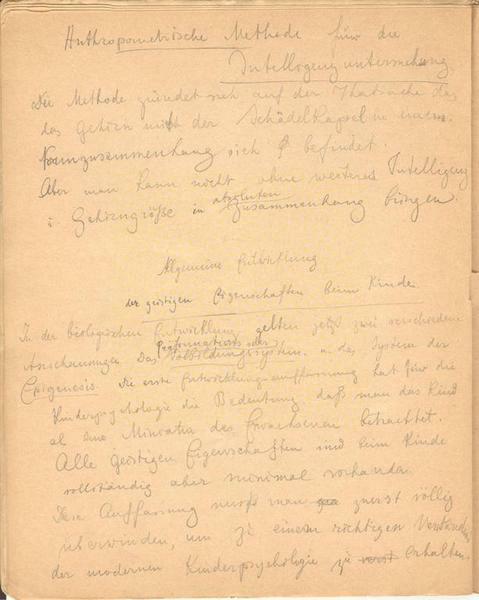 Anthropometrische Methode für die
Intelligenzuntersuchung
Die Methode gründet sich auf der Thatsache das
das Gehirn mit der Schädelkapsel in einem
Raumzusammenhang sich befindet.
Aber man kann nicht ohne weiteres Intelligenz
u. Gehirngröße in absoluten Zusammenhang bringen.
Allgemeine Entwicklung
der geistigen Eigenschaften beim Kinde
In der biologischen Entwicklung gelten jetzt zwei verschiedene
Anschauungen Das Präformations oder
system. u. das System der
Epigenesis. Die erste Entwicklungsauffassung hat für die
Kinderpsychologie die Bedeutung, daß man das Kind
als eine Miniatur des Erwachsenen betrachtet.
Alle geistigen Eigenschaften sind beim Kinde
vollständig aber minimal vorhanden.
Diese Auffassung muß man zuerst völlig
überwinden, um zu einem richtigen Verständnis
der modernen Kinderpsychologie zu erhalten.